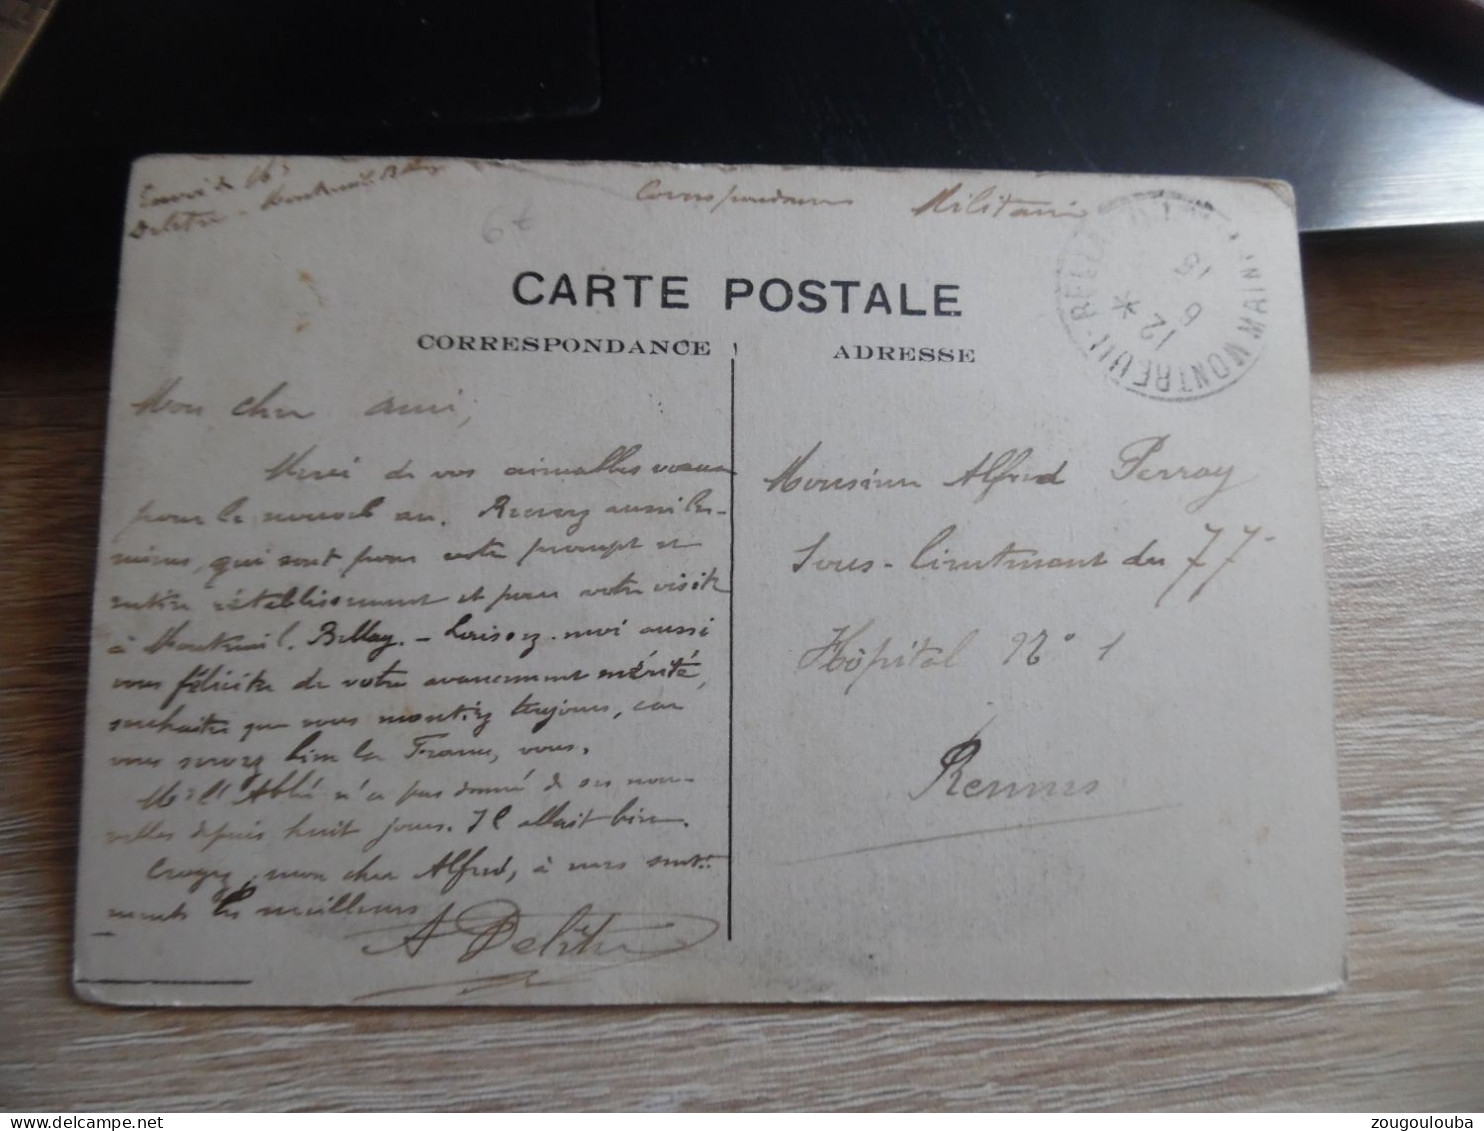 Envoi de Mr
Delétre - Montreuil Bellay
Correspondance Militaire
6€
CARTE POSTALE
CORRESPONDANCE
ADRESSE
MONTREUIL-BELLAY MAINE
12
6
15
Mon cher ami,
Merci de vos aimables voeux
pour le nouvel an. Recevez aussi les
miens, qui sont pour votre prompt et
entier rétablissement et pour votre visite
à Montreuil-Bellay. - Laissez-moi aussi
vous féliciter de votre avancement mérité,
souhaiter que vous montiez toujours, car
vous servez bien la France, vous.
Mr l'Abbé n'a pas donné de ses nou-
velles depuis huit jours. Il allait bien.
Croyez, mon cher Alfred, à mes senti-
ments les meilleurs
A Delétre
Monsieur Alfred Perray
Sous-lieutenant du 77e
Hôpital No 1
Rennes
zougoulouba